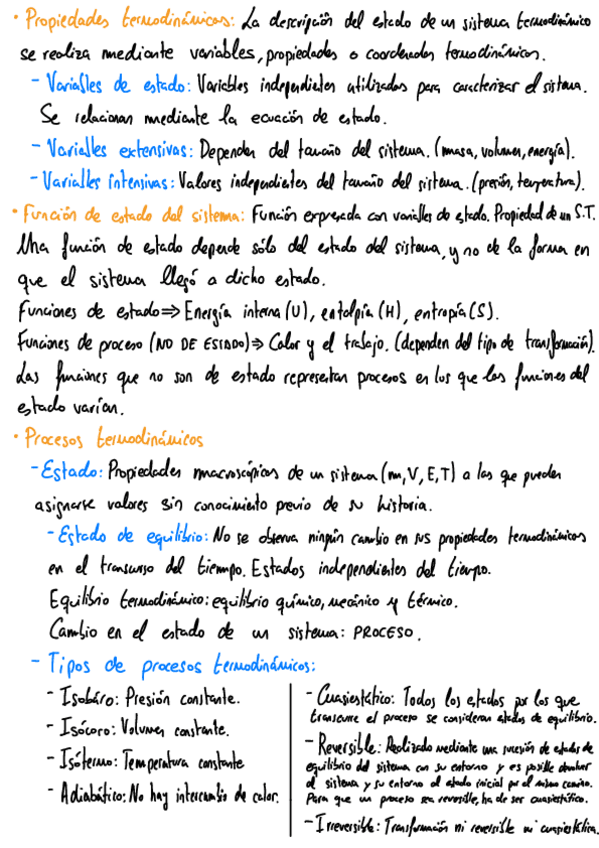 · Propiedades termodinámicas: La descripción del estado de un sistema termodinámico
se realiza mediante variables, propiedades o coordenadas termodinámicas.
- Variables de estado: Variables independientes utilizadas para caracterizar el sistema.
Se relacionan mediante la ecuación de estado.
- Variables extensivas: Dependen del tamaño del sistema. (masa, volumen, energía).
- Variables intensivas: Valores independientes del tamaño del sistema. (presión, temperatura).
· Función de estado del sistema: Función expresada con variables de estado. Propiedad de un S.T.
Una función de estado depende sólo del estado del sistema, y no de la forma en
que el sistema llegó a dicho estado.
Funciones de estado ⇒ Energía interna (U), entalpía (H), entropía (S).
Funciones de proceso (NO DE ESTADO) ⇒ Calor y el trabajo. (dependen del tipo de transformación).
Las funciones que no son de estado representan procesos en los que las funciones del
estado varían.
· Procesos termodinámicos
- Estado: Propiedades macroscópicas de un sistema (m, V, E, T) a las que pueden
asignarse valores sin conocimiento previo de su historia.
- Estado de equilibrio: No se observa ningún cambio en sus propiedades termodinámicas
en el transcurso del tiempo. Estados independientes del tiempo.
Equilibrio termodinámico: equilibrio químico, mecánico y térmico.
Cambio en el estado de un sistema: PROCESO.
- Tipos de procesos termodinámicos:
- Isobáro: Presión constante.
- Isócoro: Volumen constante.
- Isótermo: Temperatura constante
- Adiabático: No hay intercambio de calor.
- Cuasiestático: Todos los estados por los que
transcurre el proceso se consideran estados de equilibrio.
- Reversible: Realizado mediante una sucesión de estados de
equilibrio del sistema con su entorno y es posible devolver
al sistema y su entorno al estado inicial por el mismo camino.
Para que un proceso sea reversible, ha de ser cuasiestático.
- Irreversible: Transformación ni reversible ni cuasiestática.